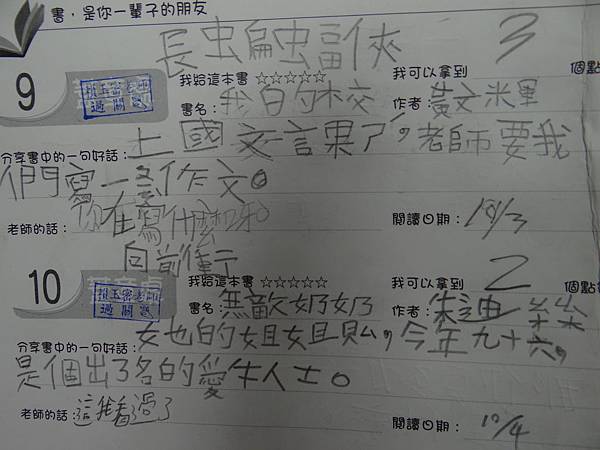 書，是你一輩子的朋友
長虫扁虫畐俠 3
9 我給這本書 ☆☆☆☆☆ 我可以拿到 個點
過關
書名：我白勺木交 作者：黃文米里
分享書中的一句好話：土國文言果了，老師要我
們寫一篇作文。
老師的話：你在寫什麼呀 閱讀日期：10/3
向前
10 我給這本書 ☆☆☆☆☆ 我可以拿到 2 個點
過關
書名：無敵奶奶 作者：朱迪
分享書中的一句好話：女也的姐姐貝ム，今年九十六，
是個出了名的愛牛人士。
老師的話：這我看過了 閱讀日期：10/4